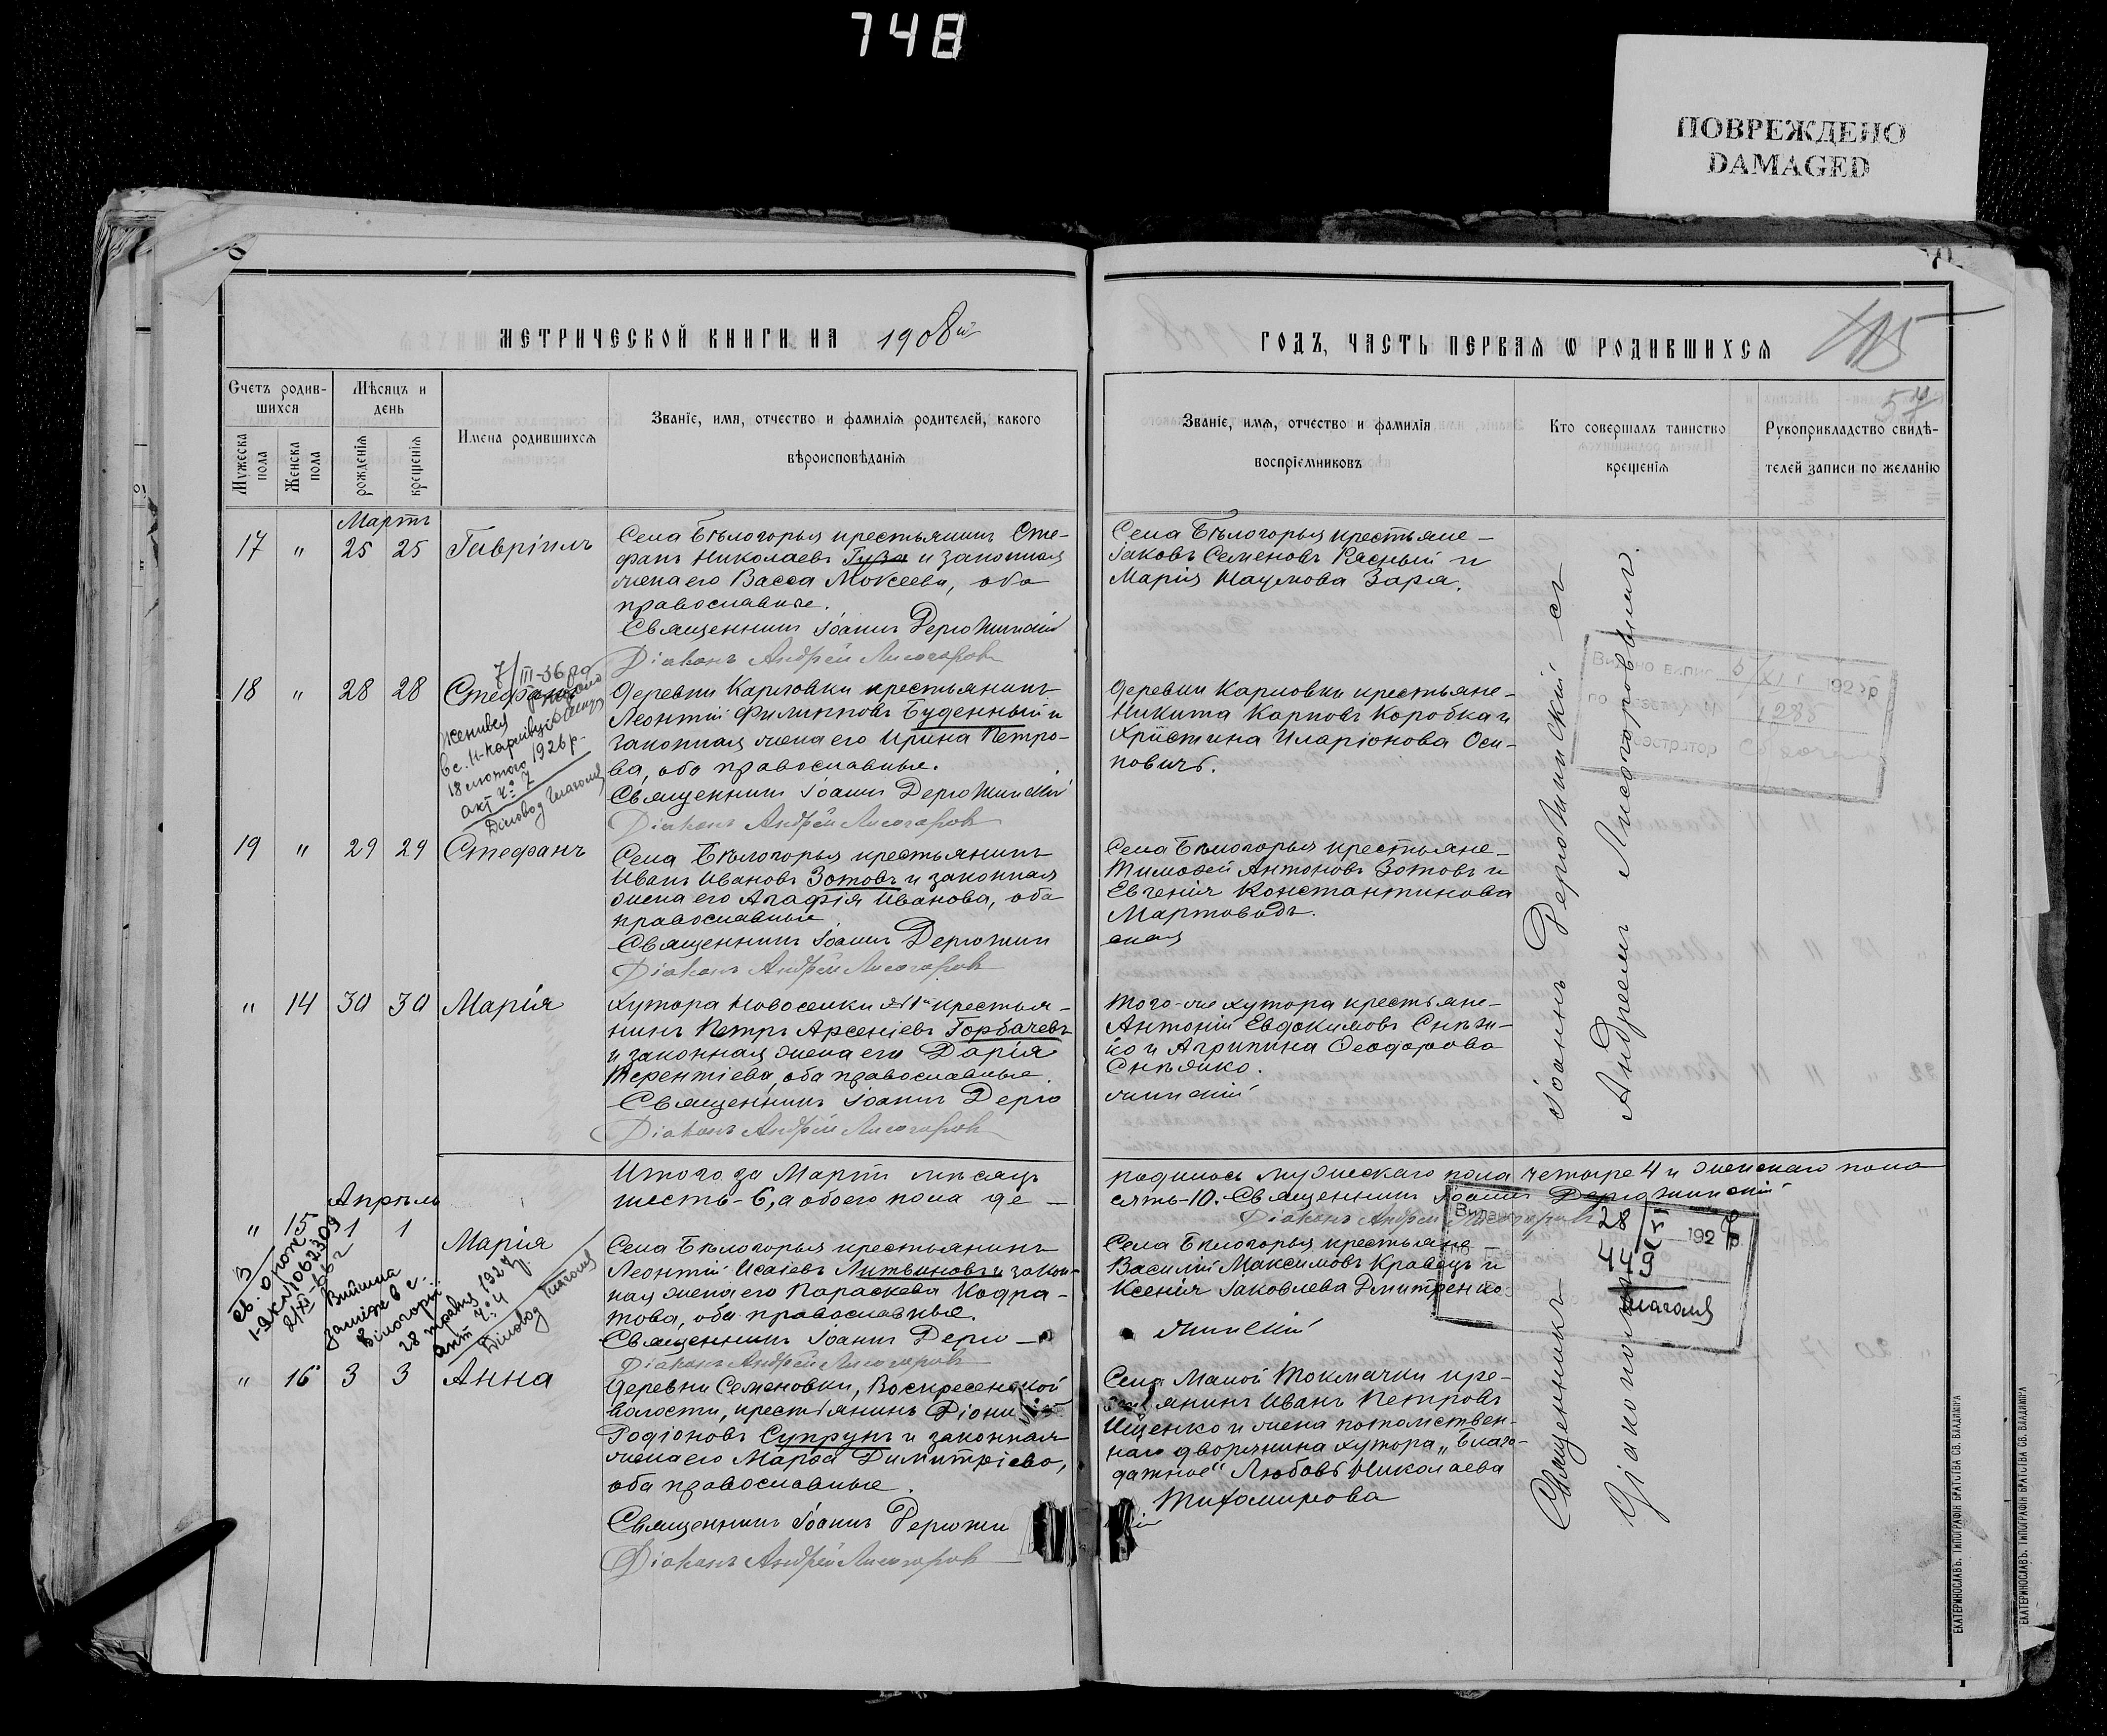 748
ПОВРЕЖДЕНО
DAMAGED
МЕТРИЧЕСКОЙ КНИГИ НА 1908й
Счетъ родив-
шихся
Мѣсяцъ и
день
Мужеска
пола
Женска
пола
рожденія
крещенія
Имена родившихся
Званіе, имя, отчество и фамилія родителей, какого
вѣроисповѣданія
Мартъ
17 " 25 25 Гавріилъ
Села Бѣлогорья крестьянинъ Сте-
фанъ Николаевъ и законная
жена его Васса Мокеева, оба
православные.
Священникъ Іоаннъ Дерюжинскій
Діаконъ Андрей Лисогоровъ
18 " 28 28 Стефанъ
7/III-36
женився
в с. Н-Карлівці
18 лютого 1926 р.
акт № 7
Діловод
Деревни Карловки крестьянинъ
Леонтій Филипповъ Буденный и
законная жена его Ирина Петро-
ва, оба православные.
Священникъ Іоаннъ Дерюжинскій
Діаконъ Андрей Лисогоровъ
19 " 29 29 Стефанъ
Села Бѣлогорья крестьянинъ
Иванъ Ивановъ Зотовъ и законная
жена его Агафія Иванова, оба
православные.
Священникъ Іоаннъ Дерюжин
Діаконъ Андрей Лисогоровъ
" 14 30 30 Марія
Хутора Новоселки №1й крестья-
нинъ Петръ Арсеніевъ Горбачевъ
и законная жена его Дарія
Терентіева, оба православные.
Священникъ Іоаннъ Дерю
Діаконъ Андрей Лисогоровъ
Итого за Мартъ мѣсяцъ
шесть-6, а обоего пола де-
Апрѣль
" 15 1 1 Марія
Вийшла
заміж в с.
Білогорії
28 травня 1927 р.
акт № 4
Діловод
Села Бѣлогорья крестьянинъ
Леонтій Исаіевъ Литвиновъ и закон-
ная жена его Параскева Кодра-
това, оба православные.
Священникъ Іоаннъ Дерю-
Діаконъ Андрей Лисогоровъ
" 16 3 3 Анна
Деревни Семеновки, Воскресенской
волости, крестьянинъ Діони
Родіоновъ Супрунъ и законная
жена его Марфа Димитріева,
оба православные.
Священникъ Іоаннъ Дерюжи
Діаконъ Андрей Лисогоровъ
ГОДЪ, ЧАСТЬ ПЕРВАЯ Ѡ РОДИВШИХСЯ
115
57
Званіе, имя, отчество и фамилія
воспріемниковъ
Кто совершалъ таинство
крещенія
Рукоприкладство свидѣ-
телей записи по желанію
Села Бѣлогорья крестьяне-
Іаковъ Семеновъ Рясный и
Марія Наумова Заря.
Деревни Карловки крестьяне-
Никита Карповъ Коробка и
Христина Иларіонова Оси-
повичъ.
Села Бѣлогорья крестьяне-
Тимофей Антоновъ Зотовъ и
Евгенія Константинова
Мартовод.
ская
Того-же хутора крестьяне-
Антоній Евдокимовъ Снѣж-
ко и Агрипина Феодорова
Снѣжко.
жинскій
родилось мужескаго пола четыре 4 и женскаго пола
сять-10. Священникъ Іоаннъ Дерюжинскій
Діаконъ Андрей Лисогоровъ
Села Бѣлогорья крестьяне
Василій Максимовъ Кравецъ и
Ксенія Іаковлева Дмитренко
жинскій
Села Малой Токмачки кре-
янинъ Иванъ Петровъ
Ищенко и жена потомствен-
наго дворянина хутора „Благо-
датное" Любовь Николаева
Тихомирова
Священникъ Іоаннъ Дерюжинскій съ
Діакономъ Андреемъ Лисогоровымъ.
Видано випис 5/XII 1925р
по реєстру № 1288
Реєстратор
Видано 28/V 1927 р.
449
ЕКАТЕРИНОСЛАВЪ. ТИПОГРАФІЯ БРАТСТВА СВ. ВЛАДИМІРА
ЕКАТЕРИНОСЛАВЪ. ТИПОГРАФІЯ БРАТСТВА СВ. ВЛАДИМІРА